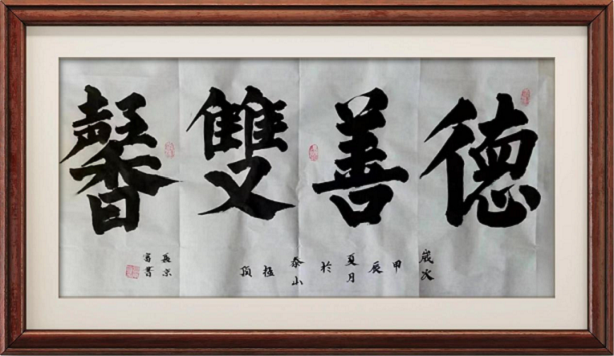 德善雙馨
歲次甲辰夏月於泰山極頂